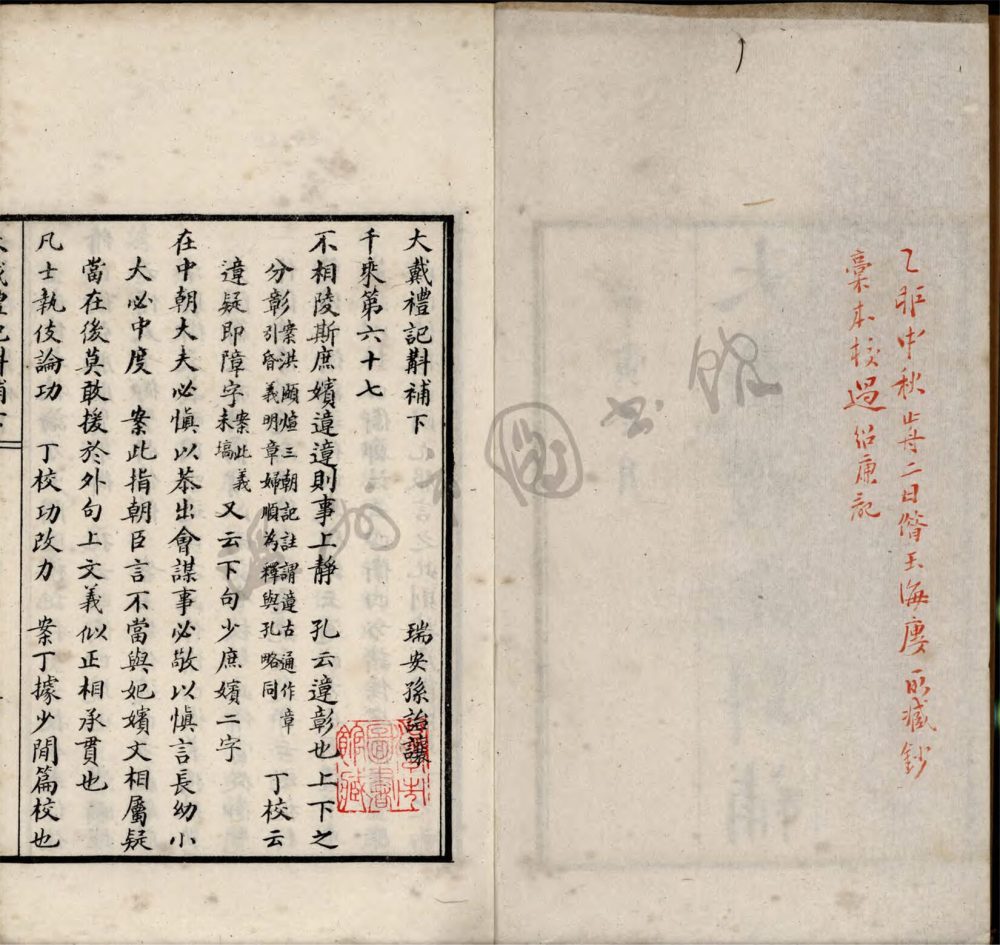 乙邜中秋歬二日偺玉海廔所藏鈔
稾本校過 紹廉記
大戴禮記斠補下 瑞安孫詒讓
千乘第六十七
不相陵斯庶嬪違違則事上靜 孔云違彰也上下之
分彰案洪頤煊三朝記註謂違古通作章引昏義明章婦順為釋與孔略同 丁校云
違疑即障字案此義未塙 又云下句少庶嬪二字
在中朝大夫必慎以恭出會謀事必敬以慎言長幼小
大必中度 案此指朝臣言不當與妃嬪文相屬疑
當在後莫敢援於外句上文義似正相承貫也
凡士執伎論功 丁校功改力 案丁據少閒篇校也
大戴禮記斠補下
圖書館藏